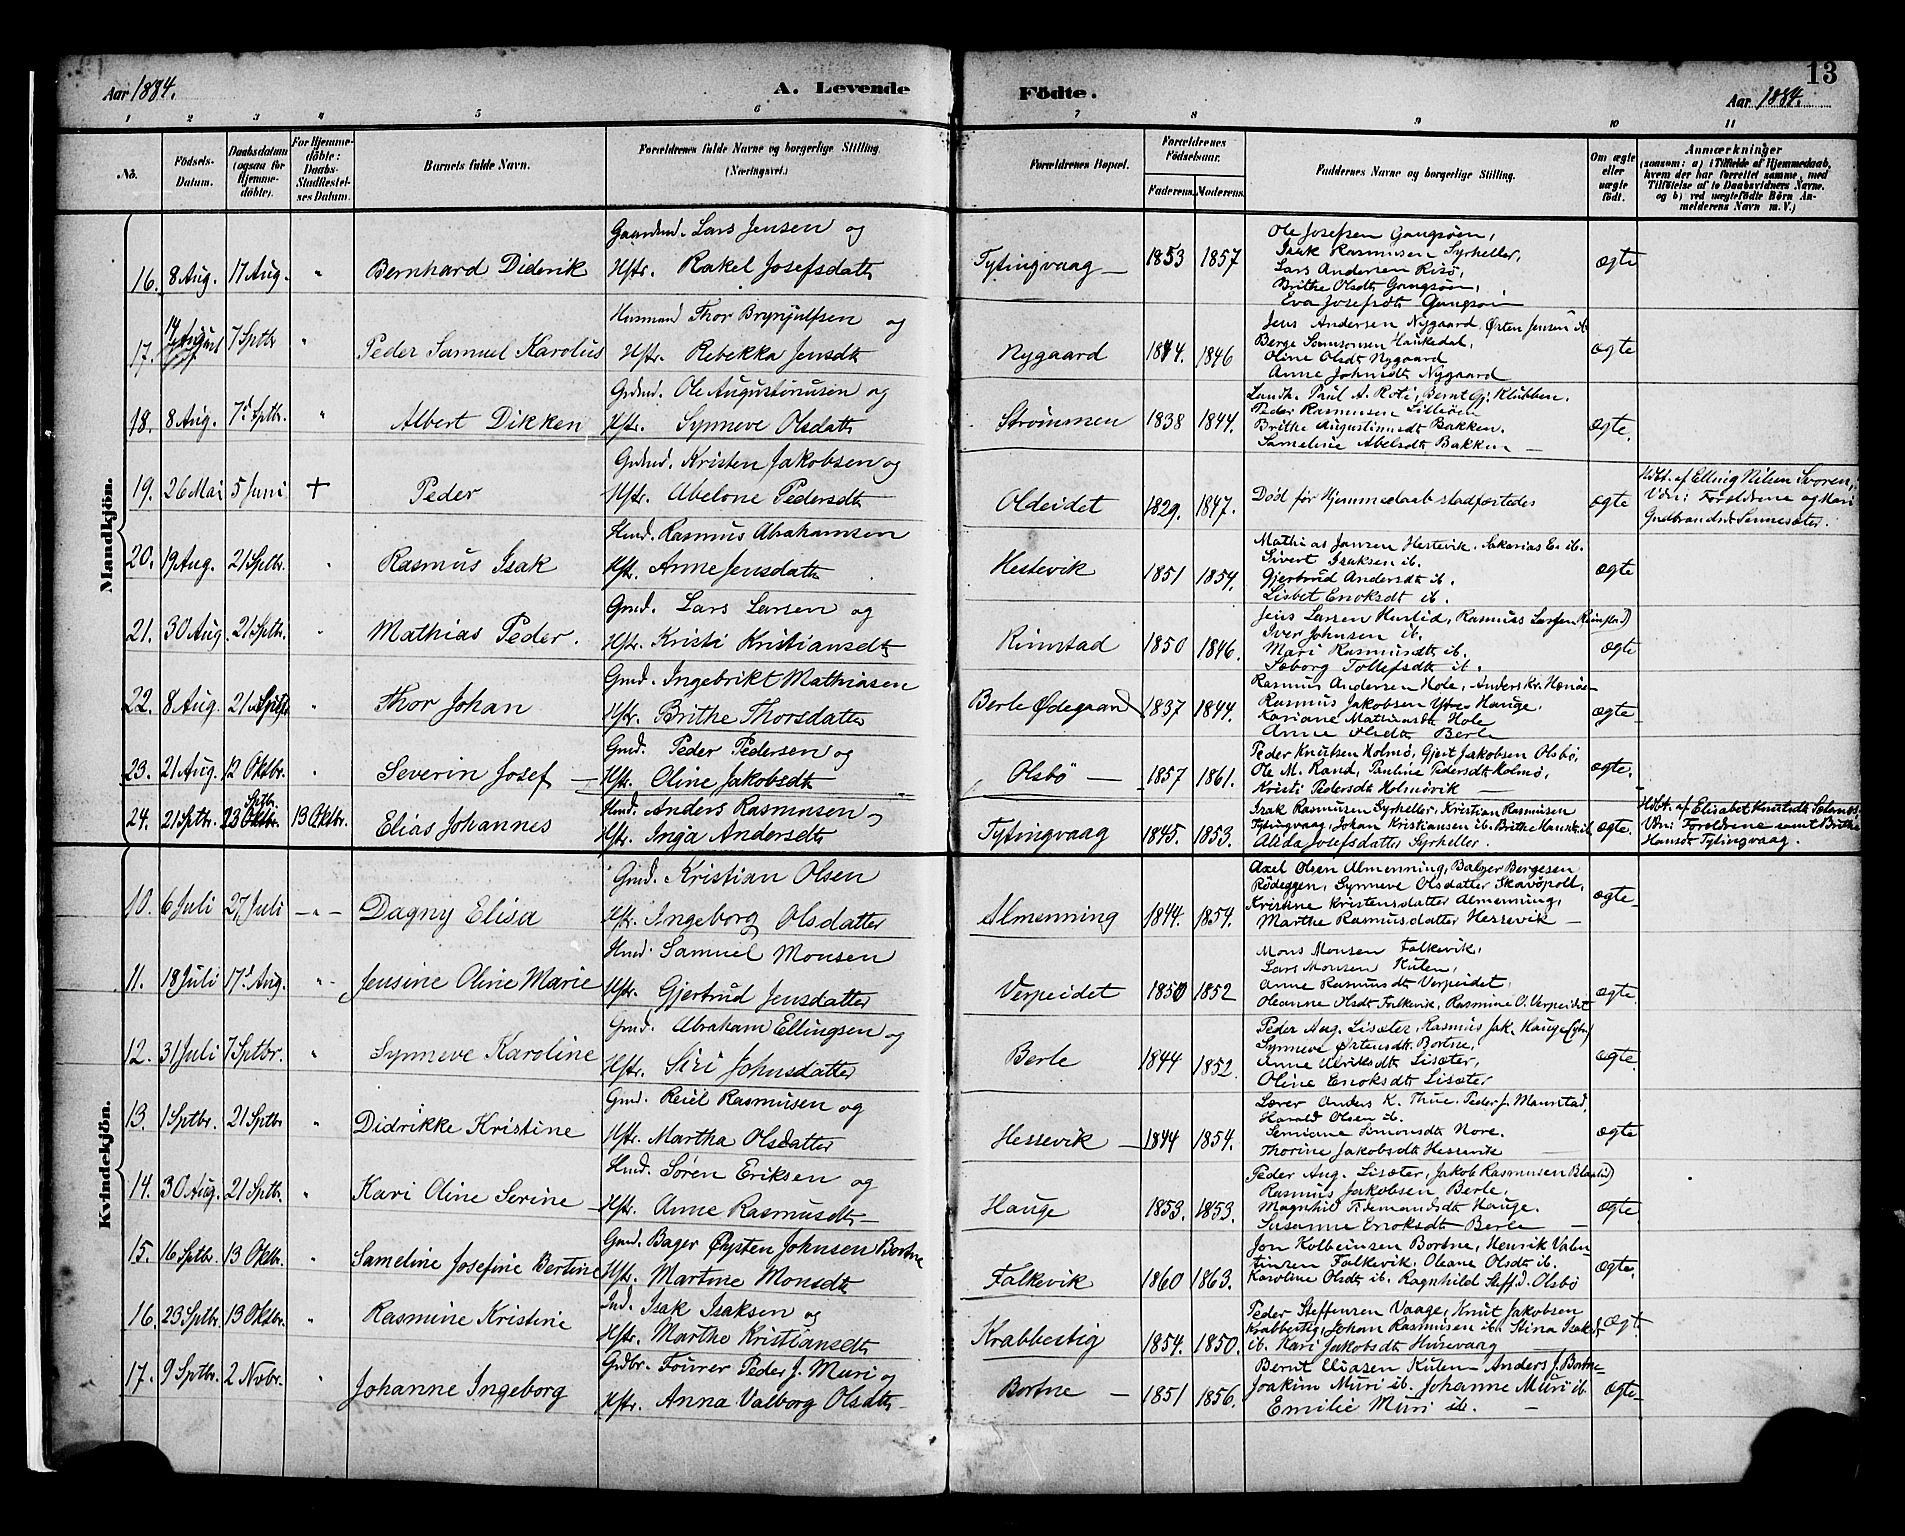 13
Aar 1884. A. Levende Födte. Aar 1884.
1 2 3 4 5 6 7 8 9 10 11
No. Födsels-Datum. Daabsdatum (ogsaa for Hjemmedöbte). For Hjemmedöbte: Daabs-Stadfæstelses Datum. Barnets fulde Navn. Forældrenes fulde Navne og borgerlige Stilling (Næringsvei.) Forældrenes Bopæl. Forældrenes Födselsaar. Faderens. Moderens. Faddernes Navne og borgerlige Stilling. Om ægte eller uægte födt. Anmærkninger (saasom: a) i Tilfælde af Hjemmedaab, hvem der har forrettet samme, med Tilföielse af to Daabsvidners Navne. og b) ved uægtefödte Börn Anmelderens Navn m. V.)
Mandkjön.
Gaardmd. Lars Jensen og
16. 8 Aug. 17 Aug. " Bernhard Diderik Hstr. Rakel Josefsdatter Tytingvaag 1853 1857 ægte
Ole Josefsen Gangsøen,
Isak Rasmussen Syrheller,
Lars Andersen Risø,
Brithe Olsdtr Gangsøen,
Eva Josefsdtr Gangsøen
Husmand Thor Brynjulfsen og
17. 14 August 7 Sptbr " Peder Samuel Karolus Hstr. Rebekka Jensdtr Nygaard 1844. 1846 ægte
Jens Andersen Nygaard, Østen Jensen ib
Berge Samsonsen Haukedal,
Oline Olsdtr Nygaard
Anne Johnsdtr Nygaard
Grdmd. Ole Augustinusen og
18. 8 Aug. 7d Sptbr. " Albert Dikken Hstr. Synneve Olsdatter Strømmen 1838 1844. ægte.
Landh. Paul A. Roti, Bernt Gj. Klubben,
Peder Rasmussen Lilleøen
Brithe Augustinusdtr Bakken.
Sameline Abelsdtr Bakken
Grdmd. Kristen Jakobsen og
19. 26 Mai 5 Juni + Peder Hstr. Abelone Pedersdtr Oldeidet 1829. 1847. Død før Hjemmedaab stadfæstedes ægte
Hdbt. af Elling Nilsen Svoren,
Vdn: Forældrene og Mari
Gudbrandsdtr Sennesæter.
Hmd. Rasmus Abrahamsen
20. 19 Aug. 21 Sptbr. " Rasmus Isak Hstr. Anne Jensdatter Hestevik 1851 1854. ægte
Mathias Jansen Hestevik, Sakarias E. ib.
Sivert Isaksen ib.
Gjertrud Andersdtr ib.
Lisbet Enoksdtr ib.
Gmd. Lars Larsen og
21. 30 Aug. 21 Sptbr. " Mathias Peder. Hstr. Kristi Kristiansdtr Rimstad 1850 1846. ægte
Jens Larsen Hustid, Rasmus Larsen Rimstad)
Iver Johnsen ib.
Mari Rasmusdtr ib.
Søborg Tollefsdtr ib.
Gmd. Ingebrikt Mathiasen
22. 8 Aug. 21 Sptbr " Thor Johan Hstr. Brithe Thorsdatter Berle Ødegaard 1837 1844. ægte
Rasmus Andersen Hole, Anders Kr. Henøe
Rasmus Jakobsen Ytre Hauge,
Kariane Mathiasdtr Hole
Anne Olsdtr Berle
Gmd. Peder Pedersen og
23. 21 Aug. 12 Oktbr. " Severin Josef Hstr. Oline Jakobsdtr Olsbö 1857 1861. ægte.
Peder Knutsen Holmö, Gjert Jakobsen Olsbö,
Ole M. Rand, Pauline Pedersdtr Holmö,
Kristi Pedersdtr Holmövik
Hmd. Anders Rasmusen
24. 21 Sptbr. 23 Oktbr. Sptbr. 13 Oktbr. Elias Johannes Hstr. Inga Andersdtr Tytingvaag 1845. 1853. ægte.
Isak Rasmusen Syrheller, Kristian Rasmusen
Tytingvaag, Johan Kristiansen ib. Brithe Hansdtr ib
Alida Josefsdatter Syrheller.
Hdbt. af Elisabet Knutsdtr Sætenes,
Vdn: Forældrene samt Brithe
Hansdtr Tytingvaag.
Kvindekjön.
Gmd. Kristian Olsen
10. 6 Juli 27 Juli " Dagny Elisa Hstr. Ingeborg Olsdatter Almenning 1844. 1854. ægte
Axel Olsen Almenning, Balzer Bergesen
Rödeggen, Synneve Olsdatter Skavöpoll,
Kristine Kristensdatter Almenning,
Marthe Rasmusdatter Hessevik
Hmd. Samuel Monsen
11. 18 Juli 17d Aug. " Jensine Oline Marie Hstr. Gjertrud Jensdatter Verpeidet 1850 1852 ægte.
Mons Monsen Falkevik,
Lars Monsen Kulen,
Anne Rasmusdtr Verpeidet,
Oleanne Olsdt Falkevik, Rasmine O. Verpeidet
Gmd. Abraham Ellingsen og
12. 31 Juli 7 Sptbr. " Synneve Karoline Hstr. Siri Johnsdatter Berle 1844 1852. ægte
Peder Aug. Lisæter, Rasmus Jak. Hauge (ytre)
Synneve Østensdtr. Bortne,
Anne Ulriksdtr Lisæter,
Oline Enoksdtr Lisæter
Gmd. Reiel Rasmusen og
13. 1 Sptbr. 21 Sptbr " Didrikke Kristine Hstr. Martha Olsdatter Hessevik 1844 1854. ægte
Lærer Anders K. Thue, Peder J. Maurstad,
Harald Olsen ib.
Semiane Simonsdtr Nore.
Thorine Jakobsdtr Hessevik
Hmd. Søren Eriksen og
14. 30 Aug. 21 Sptbr. " Kari Oline Serine Hstr. Anne Rasmusdtr Hauge 1853. 1853. ægte
Peder Aug. Lisæter, Jakob Rasmusen
Rasmus Jakobsen Berle,
Magnhild Tidemandsdtr Hauge.
Susanne Enoksdtr Berle
Gmd. Bager Øysten Johnsen Bortne
15. 16 Sptbr. 13 Oktbr. " Sameline Josefine Bertine Hstr. Martine Monsdtr Falkevik 1860 1863. ægte.
Jon Kolbeinsen Bortne, Henrik Valen
tinsen Falkevik, Oleane Olsdt ib.
Karoline Olsdt ib. Ragnhild Steff.d. Olsbö
Ind. Isak Isaksen og
16. 23 Sptbr. 13 Oktbr. " Rasmine Kristine Hstr. Marthe Kristiansdtr Krabbestig 1854. 1850. ægt.
Peder Steffensen Vaage, Knut Jakobsen
Krabbestig, Johan Rasmusen ib. Stina Isaksd
ib. Kari Jakobsdtr Husevaag
Grdbr. Fourer Peder J. Muri og
17. 9 Sptbr. 2 Novbr. " Johanne Ingeborg Hstr. Anna Valborg Olsdtr Bortne 1851 1856. ægte
Bernt Eliasen Kulen Anders J. Bortne
Joakim Muri ib. Johanne Muri ib
Emilie Muri ib.